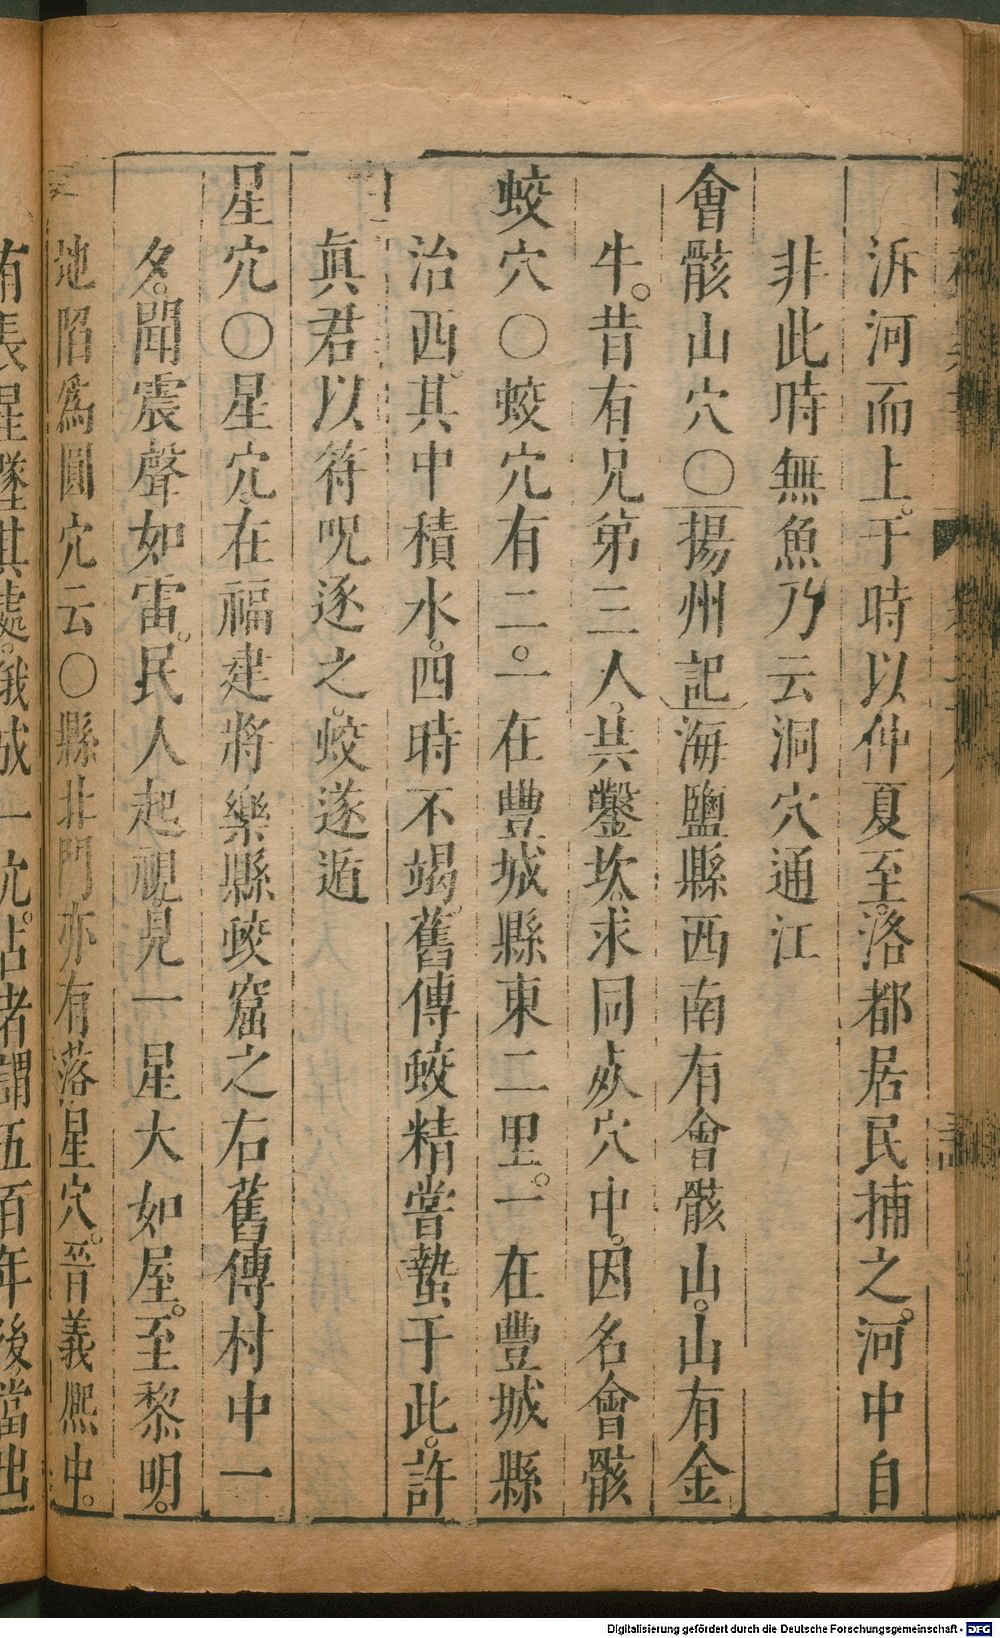 泝河而上。于時以仲夏至。洛都居民捕之。河中自
非此時無魚乃云洞穴通江
會骸山穴〇揚州記海鹽縣西南有會骸山。山有金
牛。昔有兄弟三人。共鑿坎求同㱥穴中。因名會骸
蛟穴〇蛟穴有二。一在豐城縣東二里。一在豐城縣
治西。其中積水。四時不竭。舊傳蛟精嘗蟄于此。許
眞君以符呪逐之。蛟遂遁
星穴〇星穴在福建將樂縣蛟窟之右舊傳村中一
夕。聞震聲如雷。民人起視。見一星大如屋。至黎明。
地陷爲圓穴云〇縣北門亦有落星穴。晉義熙中。
有長星墜其處。俄成一穴。占者謂五百年後當出
Digitalisierung gefördert durch die Deutsche Forschungsgemeinschaft - DFG